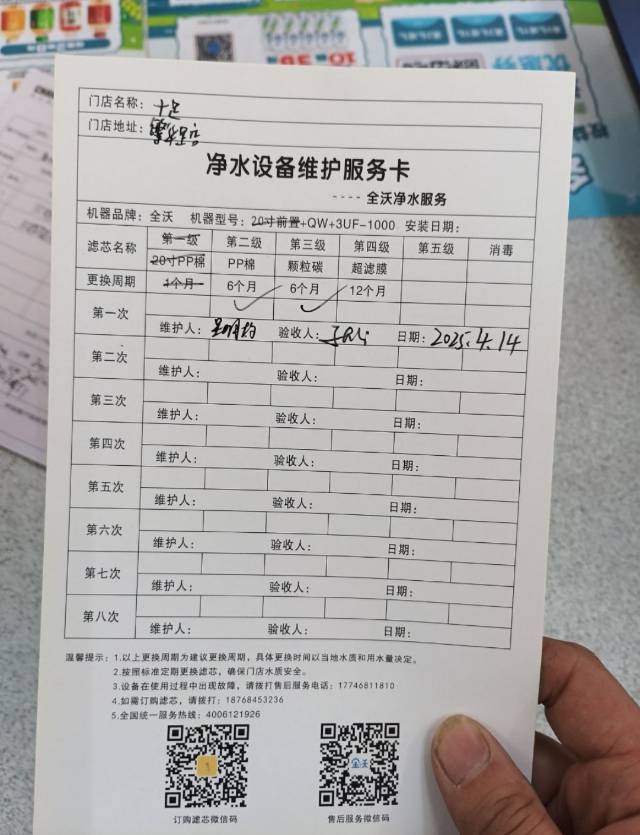 门店名称：
门店地址：
净水设备维护服务卡
---- 全沃净水服务
机器品牌：全沃 机器型号：20寸前置+QW+3UF-1000 安装日期：
滤芯名称 第一级 第二级 第三级 第四级 第五级 消毒
20寸PP棉 PP棉 颗粒碳 超滤膜
更换周期 1个月 6个月 6个月 12个月
第一次 ✓ ✓
维护人： 验收人： 日期：2025.4.14
第二次
维护人： 验收人： 日期：
第三次
维护人： 验收人： 日期：
第四次
维护人： 验收人： 日期：
第五次
维护人： 验收人： 日期：
第六次
维护人： 验收人： 日期：
第七次
维护人： 验收人： 日期：
第八次
维护人： 验收人： 日期：
温馨提示：1.以上更换周期为建议更换周期，具体更换时间以当地水质和用水量决定。
2.按照标准定期更换滤芯，确保门店水质安全。
3.设备在使用过程中出现故障，请拨打售后服务电话：17746811810
4.如需订购滤芯，请拨打：18768453236
5.全国统一服务热线：4006121926
全沃
订购滤芯微信码 售后服务微信码